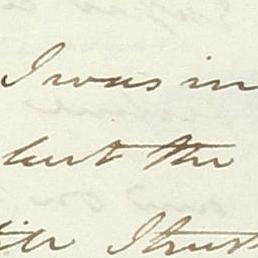 I was in
but the
I trust